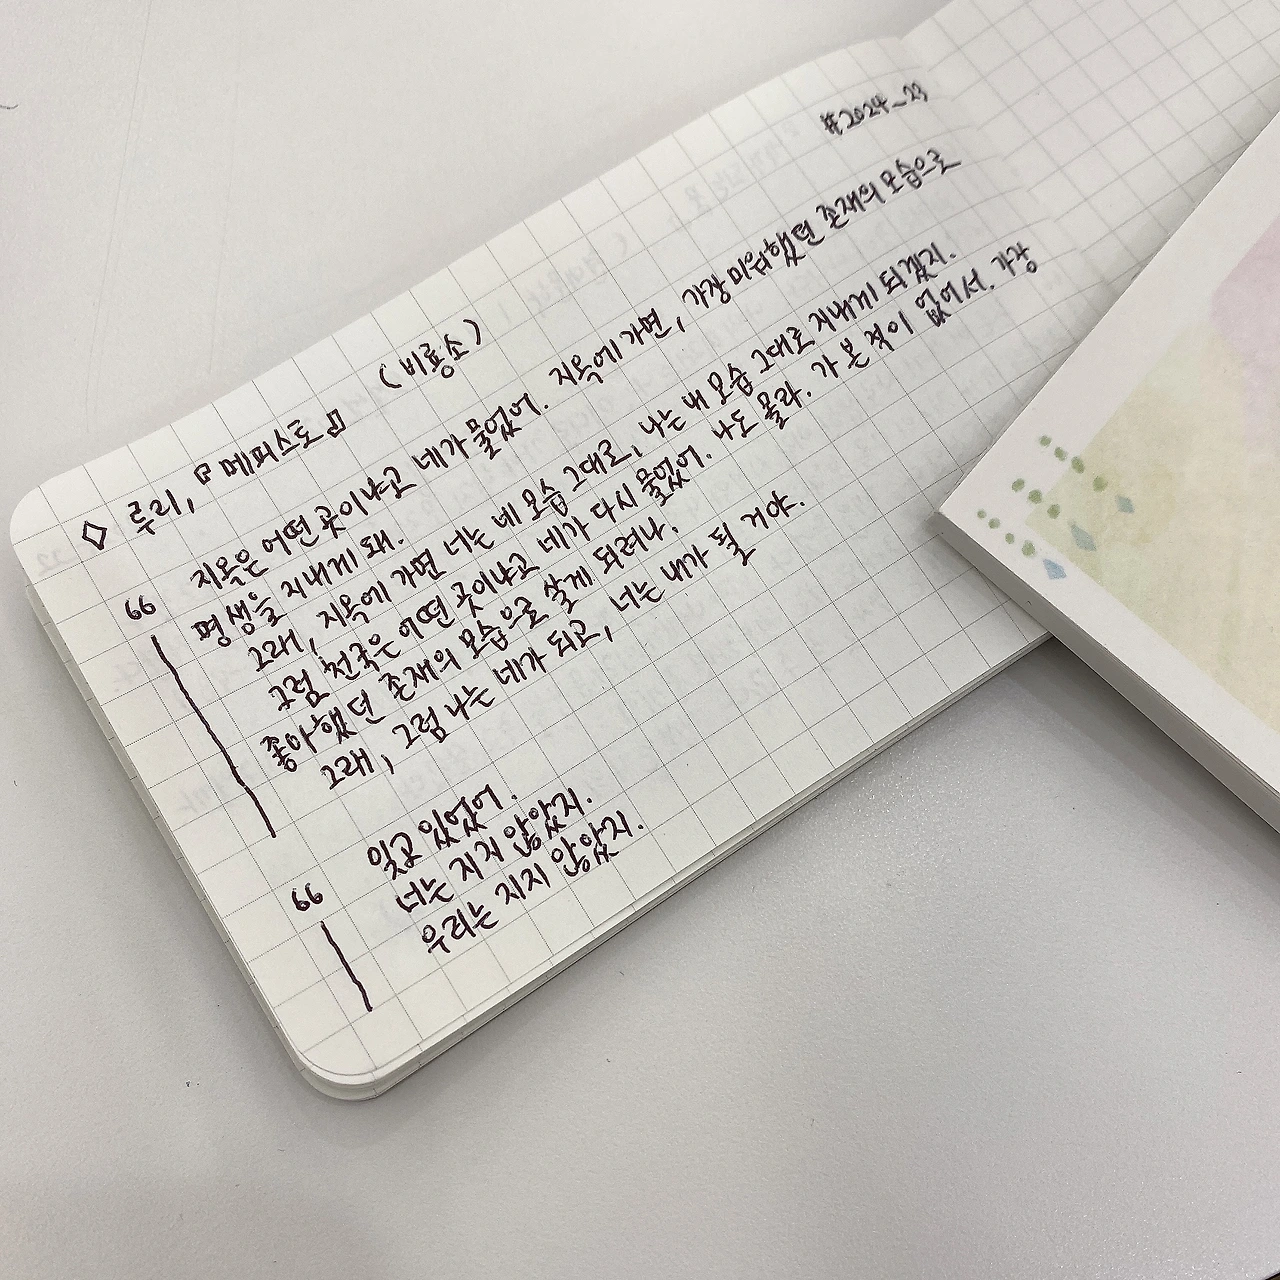 #2024_23
◇ 루리, 『메피스토』 (비룡소)
66 지옥은 어떤 곳이냐고 네가 물었어. 지옥에 가면, 가장 미워했던 존재의 모습으로
평생을 지내게 돼.
그래, 지옥에 가면 너는 네 모습 그대로, 나는 내 모습 그대로 지내게 되겠지.
그럼 천국은 어떤 곳이냐고 네가 다시 물었어. 나도 몰라. 가 본 적이 없어서. 가장
좋아했던 존재의 모습으로 살게 되려나.
그래, 그럼 나는 네가 되고, 너는 내가 될 거야.
66 잊고 있었어.
너는 지지 않았지.
우리는 지지 않았지.